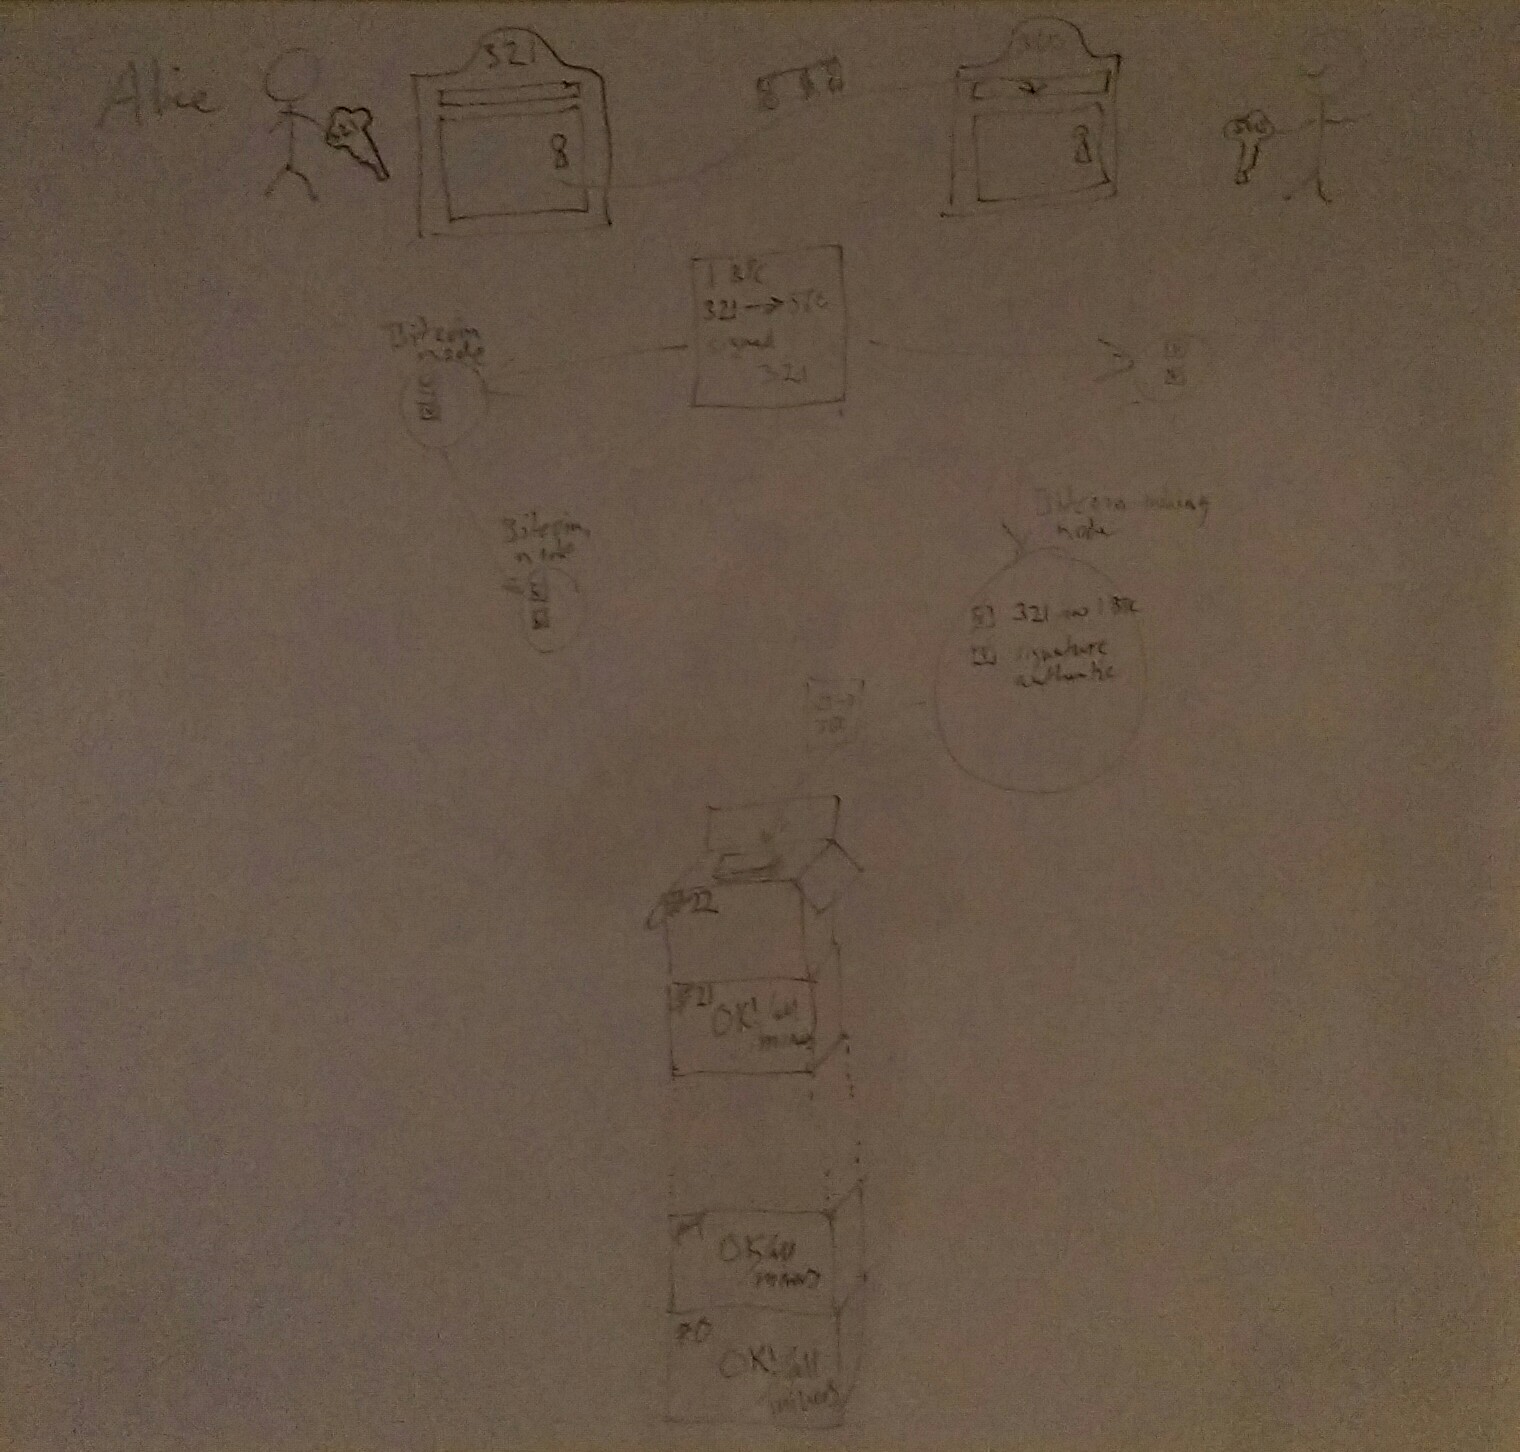 Alice
321
1 BTC
321 →
signed
321
Bitcoin
node
Bitcoin
node
Bitcoin mining
node
321 1 BTC
signature
authentic
#22
#21
OK! all
miners
OK! all
miners
#0
OK! all
miners